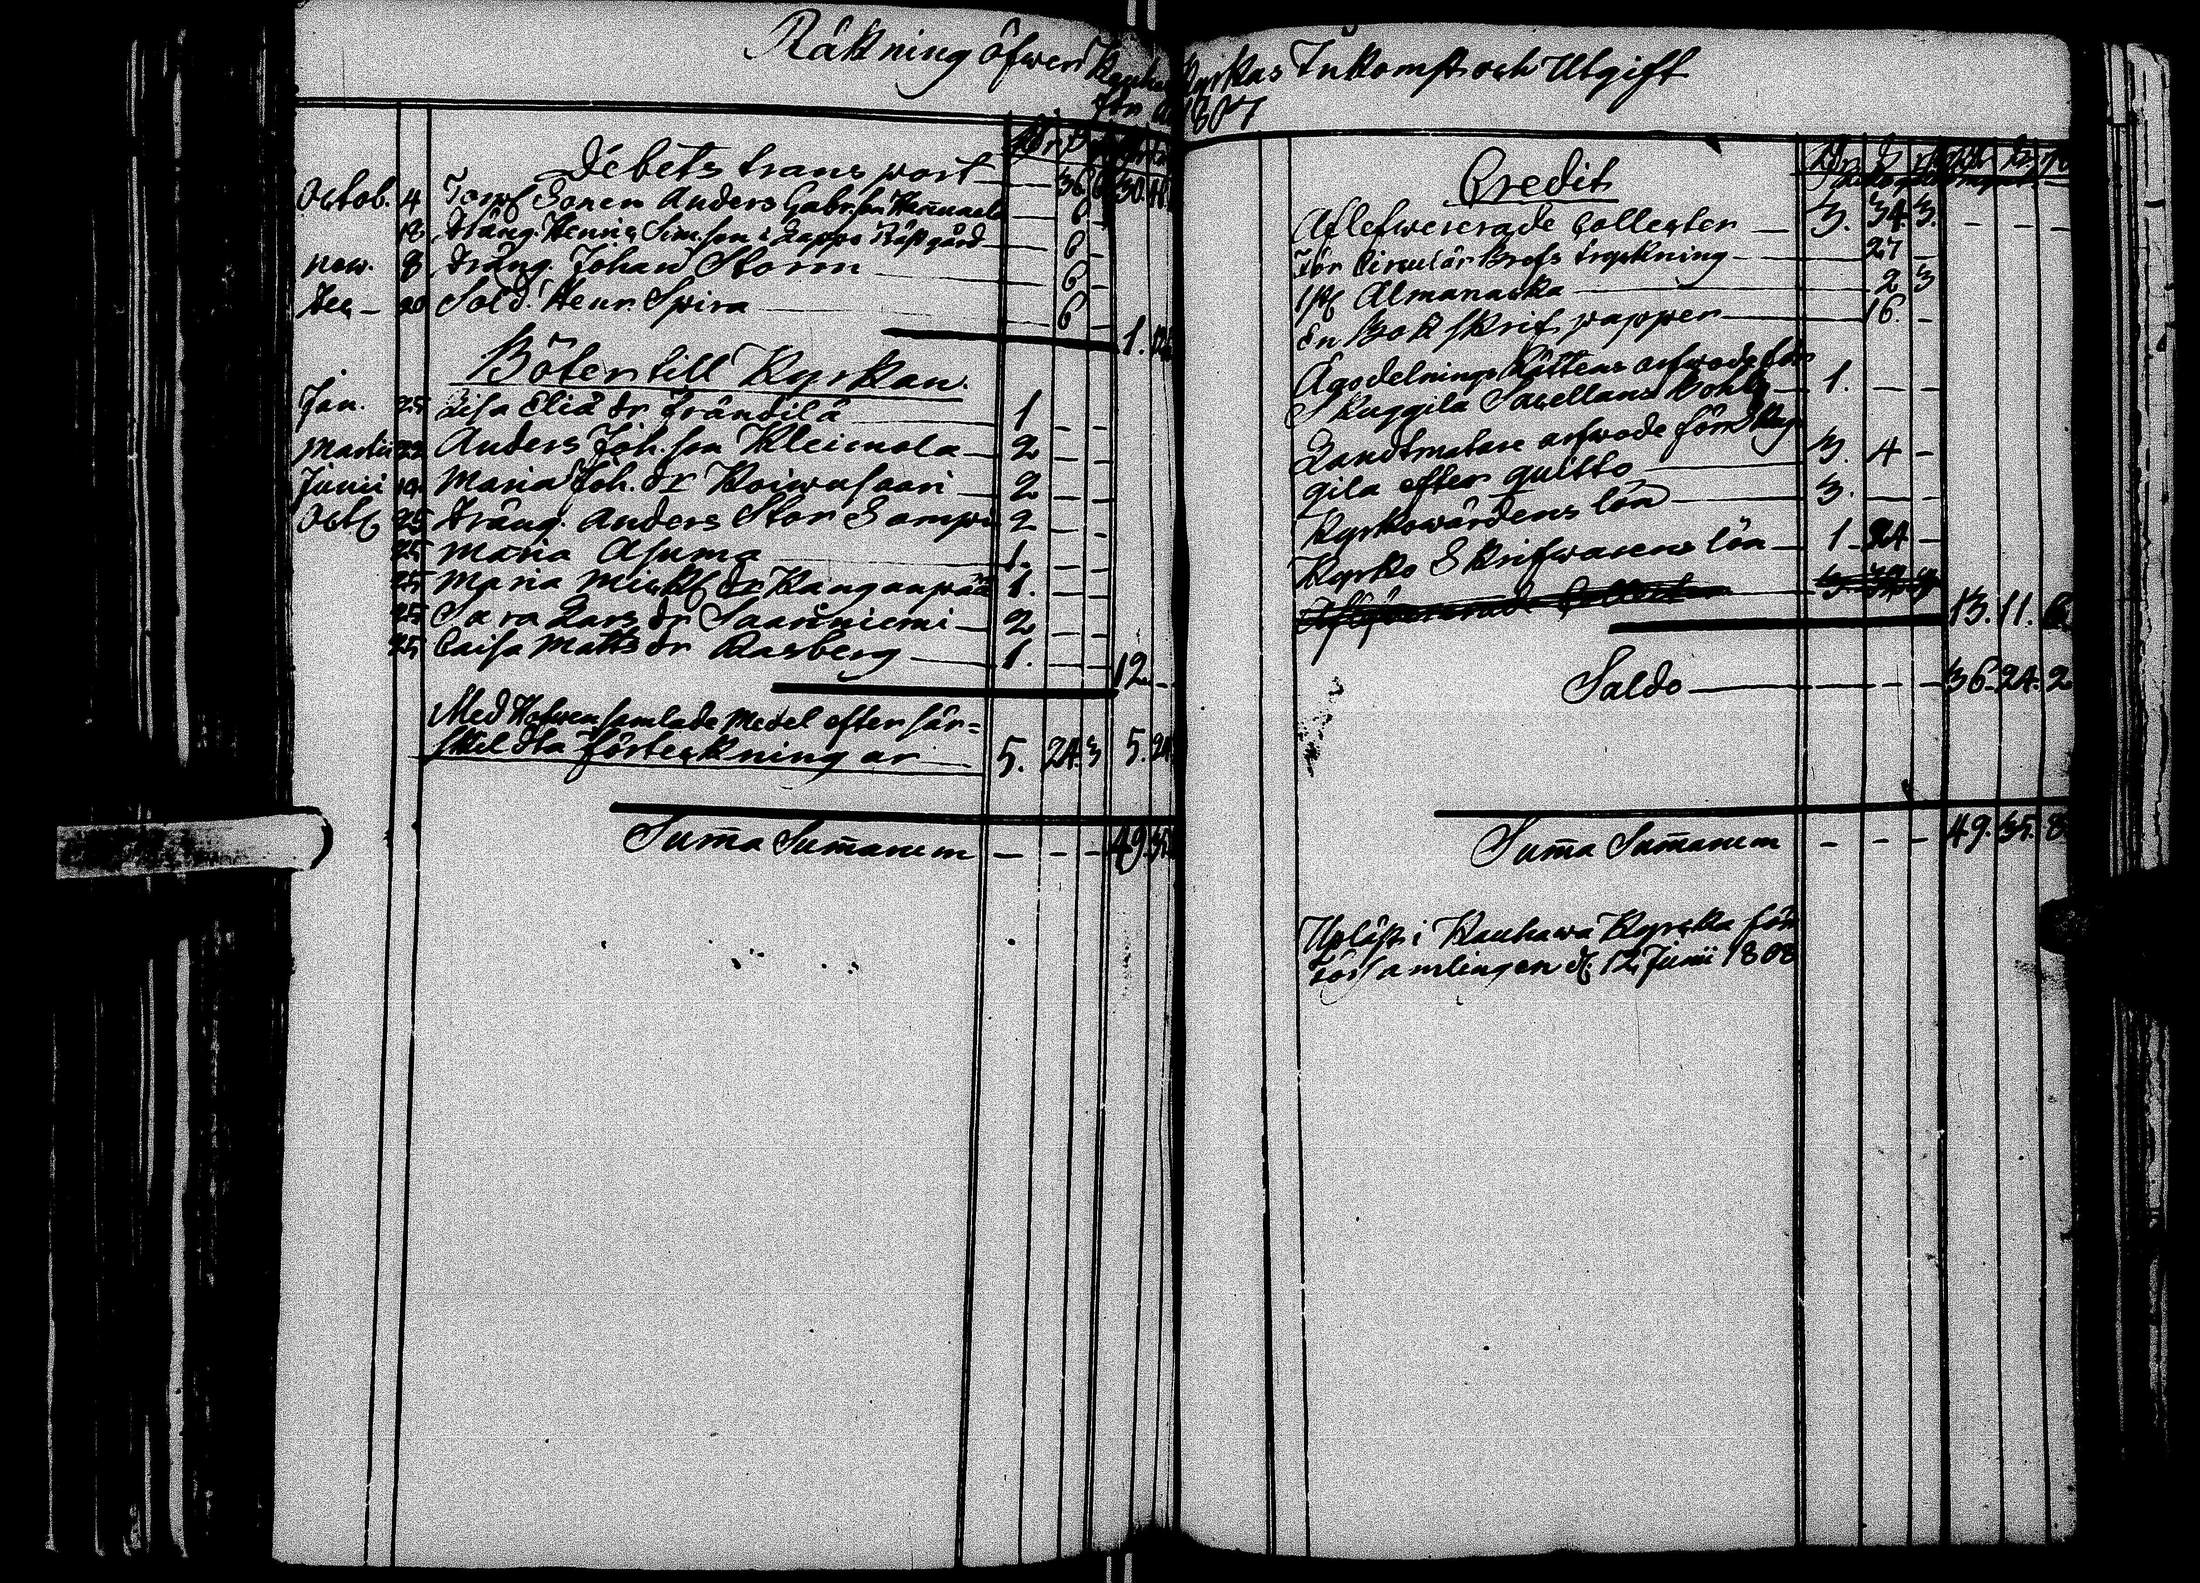 Räkning öfwer Kauhawa Kyrkas Inkomst och Utgift
för 1807
Debets transport — 36. 6 30. 16.
Octob. 4 Torp. Sonen Anders Gabr.son — 6 –
18 Dräng. Henric Simson i Lappo Präst gård — 6 –
Nov. 8 Dräng. Johan Storm — 6 –
Dec – 20 Sold. Henr. Spira — 6 –
1. 12
Böter till Kyrkan.
Jan. 25 Lisa Eliä dr Frändilä — 1 – –
Martii 22 Anders Joh.son Kleimola — 2 – –
Junii 14 Maria Joh. dr Koiwusaari — 2 – –
Oct. 25 Dräng. Anders Stor Sompi 2 – –
25 Maria Asuma — 1. – –
25 Maria Mick. dr Kanganpää 1. – –
25 Sara Lars dr Saarniemi — 2 – –
25 Caisa Matts dr Rasberg — 1. – –
12 –
Med Hafwen samlade medel efter sär=
skildta förteckning ar — 5. 24. 3 5. 24
Suma Sumarum — – – 49. 35.
Credit
Aflefwererade Collecter — 3. 34. 3. – – –
För Circulär Brefs tryckning — 27 –
1 st. Almanacka — 2 3
En Bok skrif papper — 16. –
Ägodelnings Rättens arfwode för
Skuggila Sacellans Bohl — 1. – –
Landtmätare arfwode för Skug
gila efter quitto — 3. 4 –
Kyrkowärdens lön — 3. – –
Kyrko Skrifwarens lön — 1 – 24 –
13. 11. 6
Saldo — – – 36. 24. 2
Suma Sumarum – – – 49. 35. 8
Upläst i Kauhawa Kyrcka för
Församlingen d. 12 Junii 1808